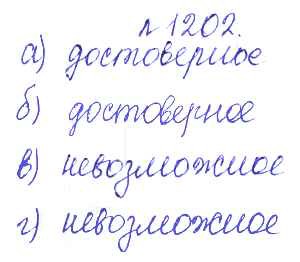 № 1202.
а) достоверное
б) достоверное
в) невозможное
г) невозможное